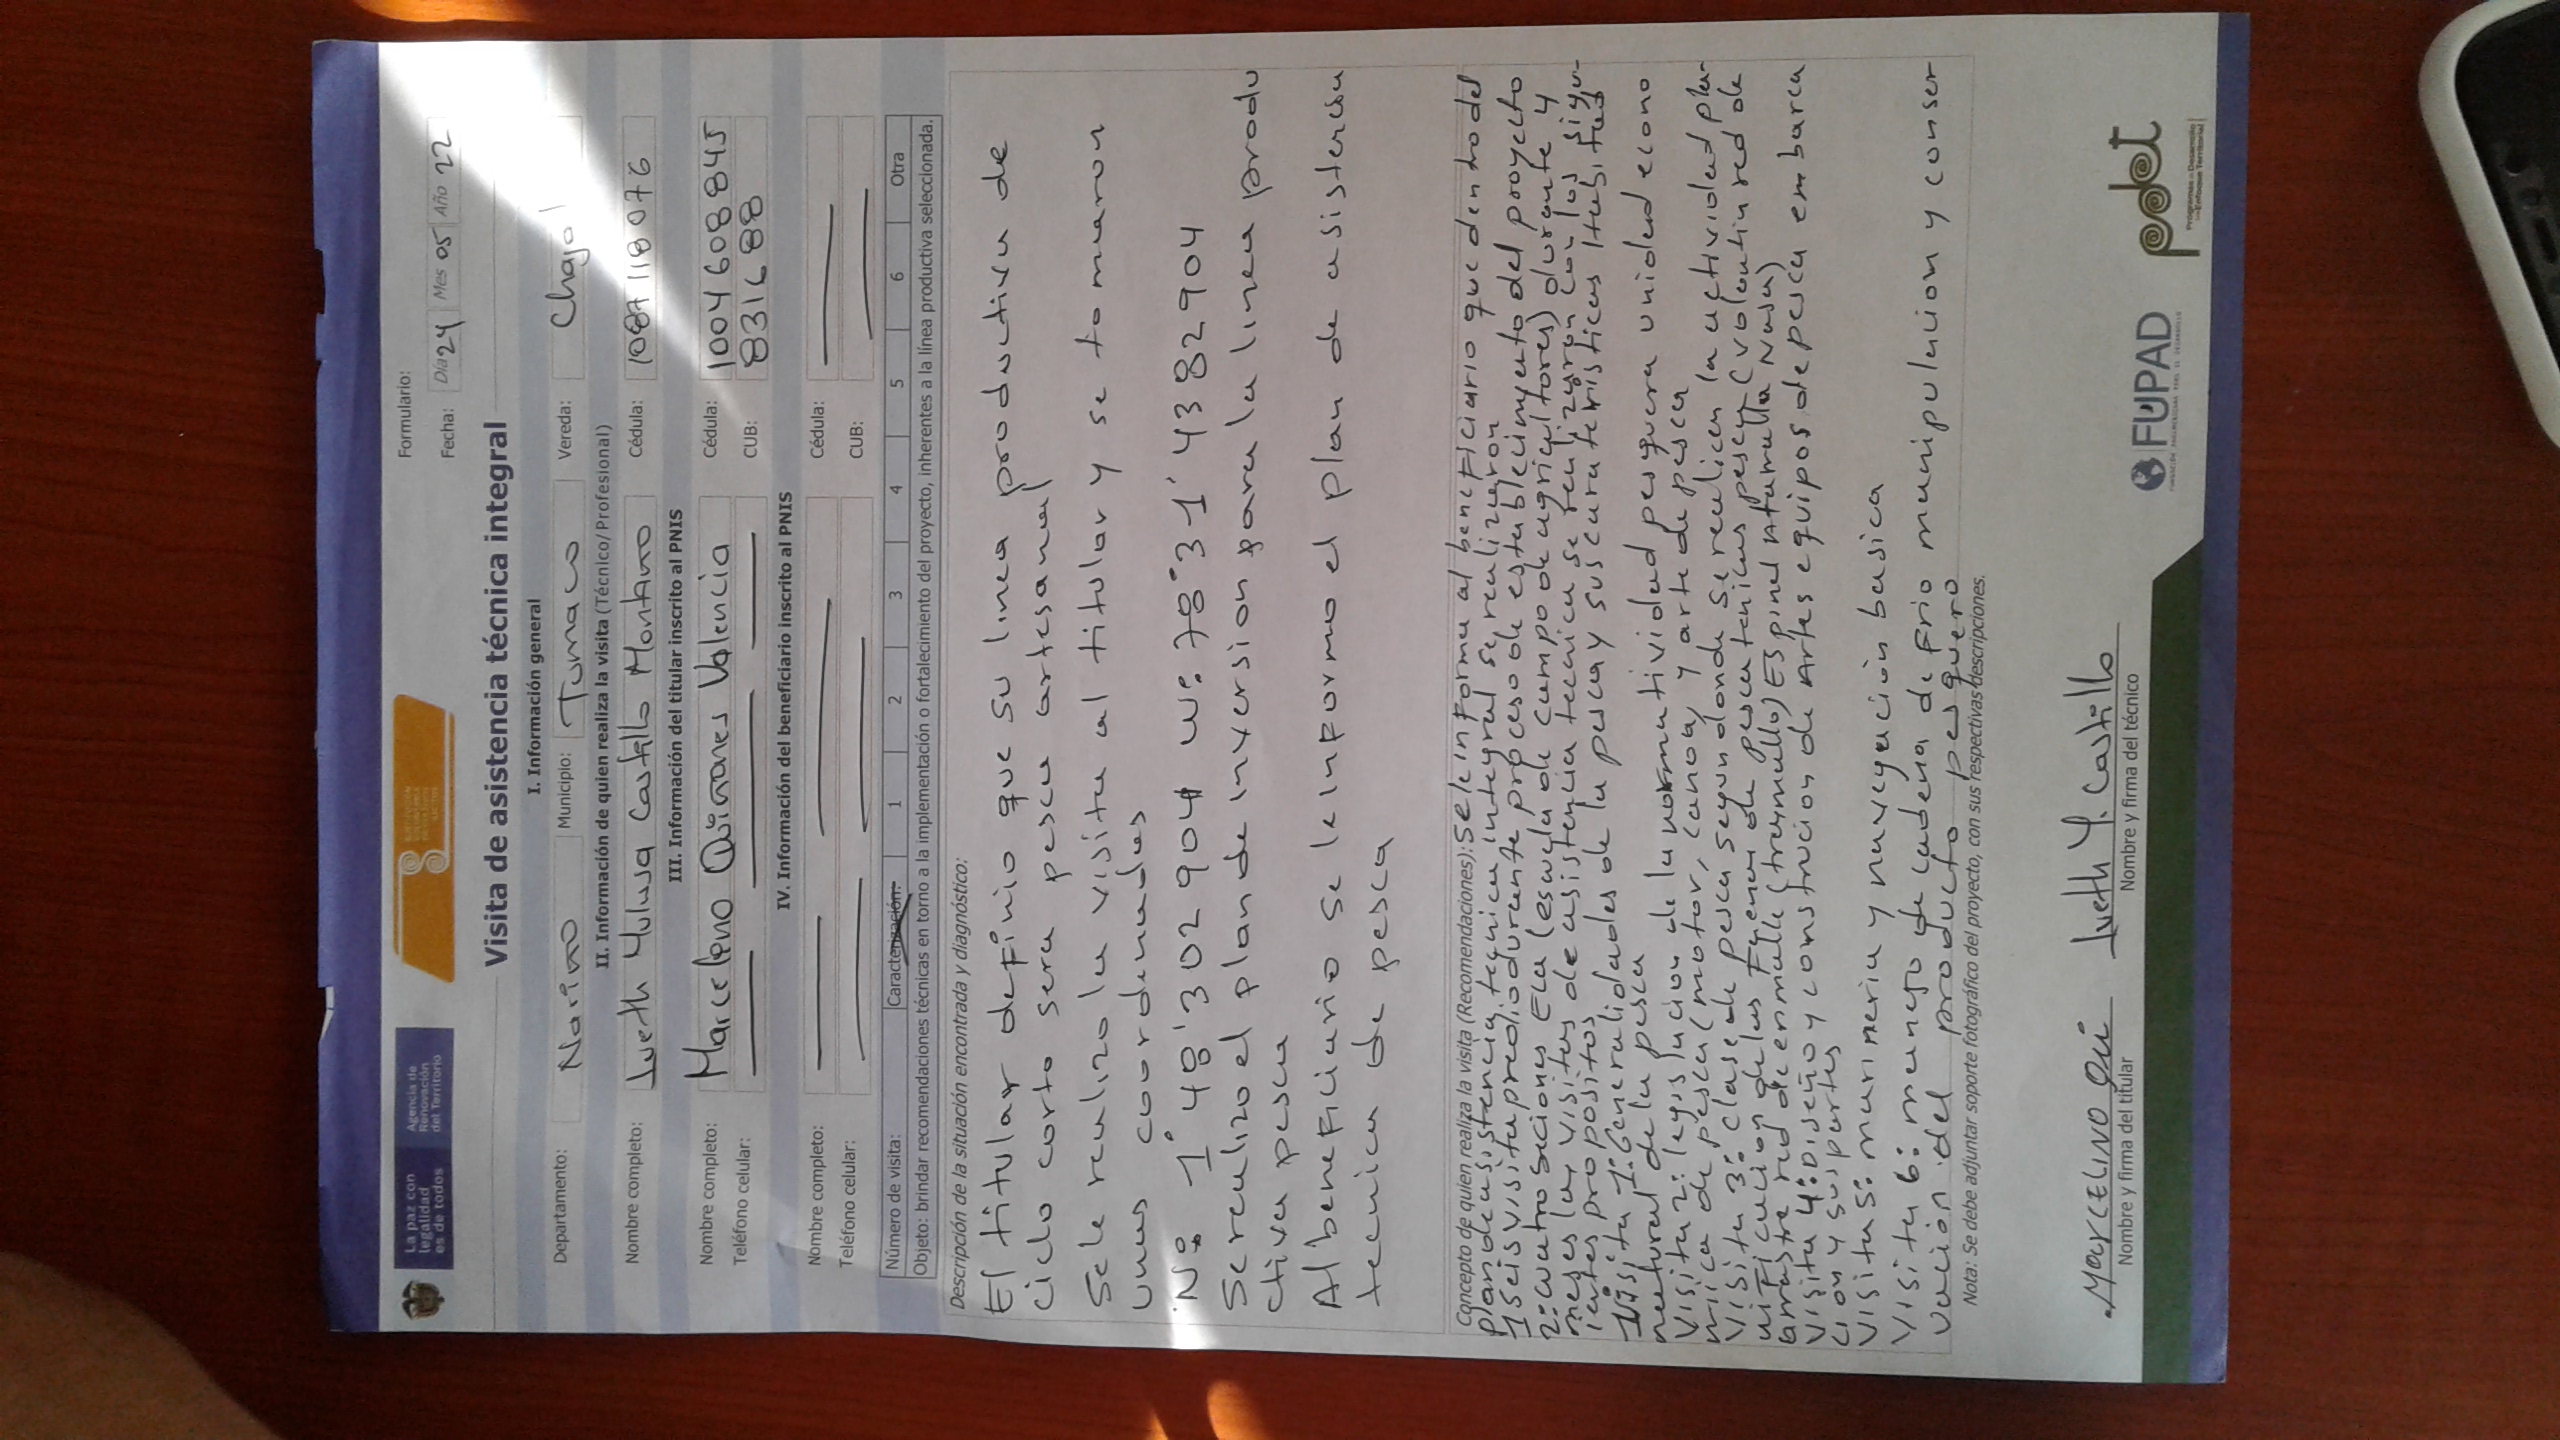 La paz con
legalidad
es de todos
Agencia de
Renovación
del Territorio
Formulario:
Fecha: Día 24 Mes 05 Año 22
Visita de asistencia técnica integral
I. Información general
Departamento: Nariño Municipio: Tumaco Vereda: Chajal
II. Información de quien realiza la visita (Técnico/Profesional)
Nombre completo: Iveth Yulusa Castillo Montaño Cédula: 1087118076
III. Información del titular inscrito al PNIS
Nombre completo: Marceleno Quiñones Valencia Cédula: 1004608845
Teléfono celular: CUB: 831688
IV. Información del beneficiario inscrito al PNIS
Nombre completo: Cédula:
Teléfono celular: CUB:
Número de visita: Caracterización: 1 2 3 4 5 6 Otra
Objeto: brindar recomendaciones técnicas en torno a la implementación o fortalecimiento del proyecto, inherentes a la línea productiva seleccionada.
Descripción de la situación encontrada y diagnóstico:
El titular definio que su linea productiva de
ciclo corto sera pesca artesanal
Se le realizo la visita al titular y se tomaron
unas coordenadas
N: 1°48'302904 W: 78°31'4382904
Se realizo el plan de inversion para la linea produ
ctiva pesca
Al beneficiario se le informo el plan de asistencia
tecnica de pesca
Concepto de quien realiza la visita (Recomendaciones): Se le informa al beneficiario que dentro del
plan de asistencia tecnica integral se realizaron
1 seis visita predio durante proceso de establecimiento del proyecto
2: cuatro secciones Eca (escuela de campo de agricultores) durante 4
meses las visitas de asistencia tecnica se realizaron con los sigu-
ientes propositos
Visita 1: Generalidades de la pesca y sus caracteristicas Habitad
natural de la pesca
Visita 2: legislacion de la normatividad pesquera unidad econo
mica de pesca (motor, canoa, y arte de pesca
Visita 3: clase de pesca segun donde se realicen la actividad pla-
nificacion de las Faenas de pesca tenicas pesca (volantin red de
arrastre red de enmalle (trasmallo) Espinel Atarralla Nasa)
Visita 4: Diseño y construcion de Artes equipos de pesca embarca
cion y sus partes
Visita 5: marineria y navegación basica
Visita 6: manejo de cadena de frio manipulacion y conser
vación del producto pesquero
Nota: Se debe adjuntar soporte fotográfico del proyecto, con sus respectivas descripciones.
MARCELINO Qui
Nombre y firma del titular
Iveth Y. Castillo
Nombre y firma del técnico
FUPAD
pdet
Programas de Desarrollo
con Enfoque Territorial